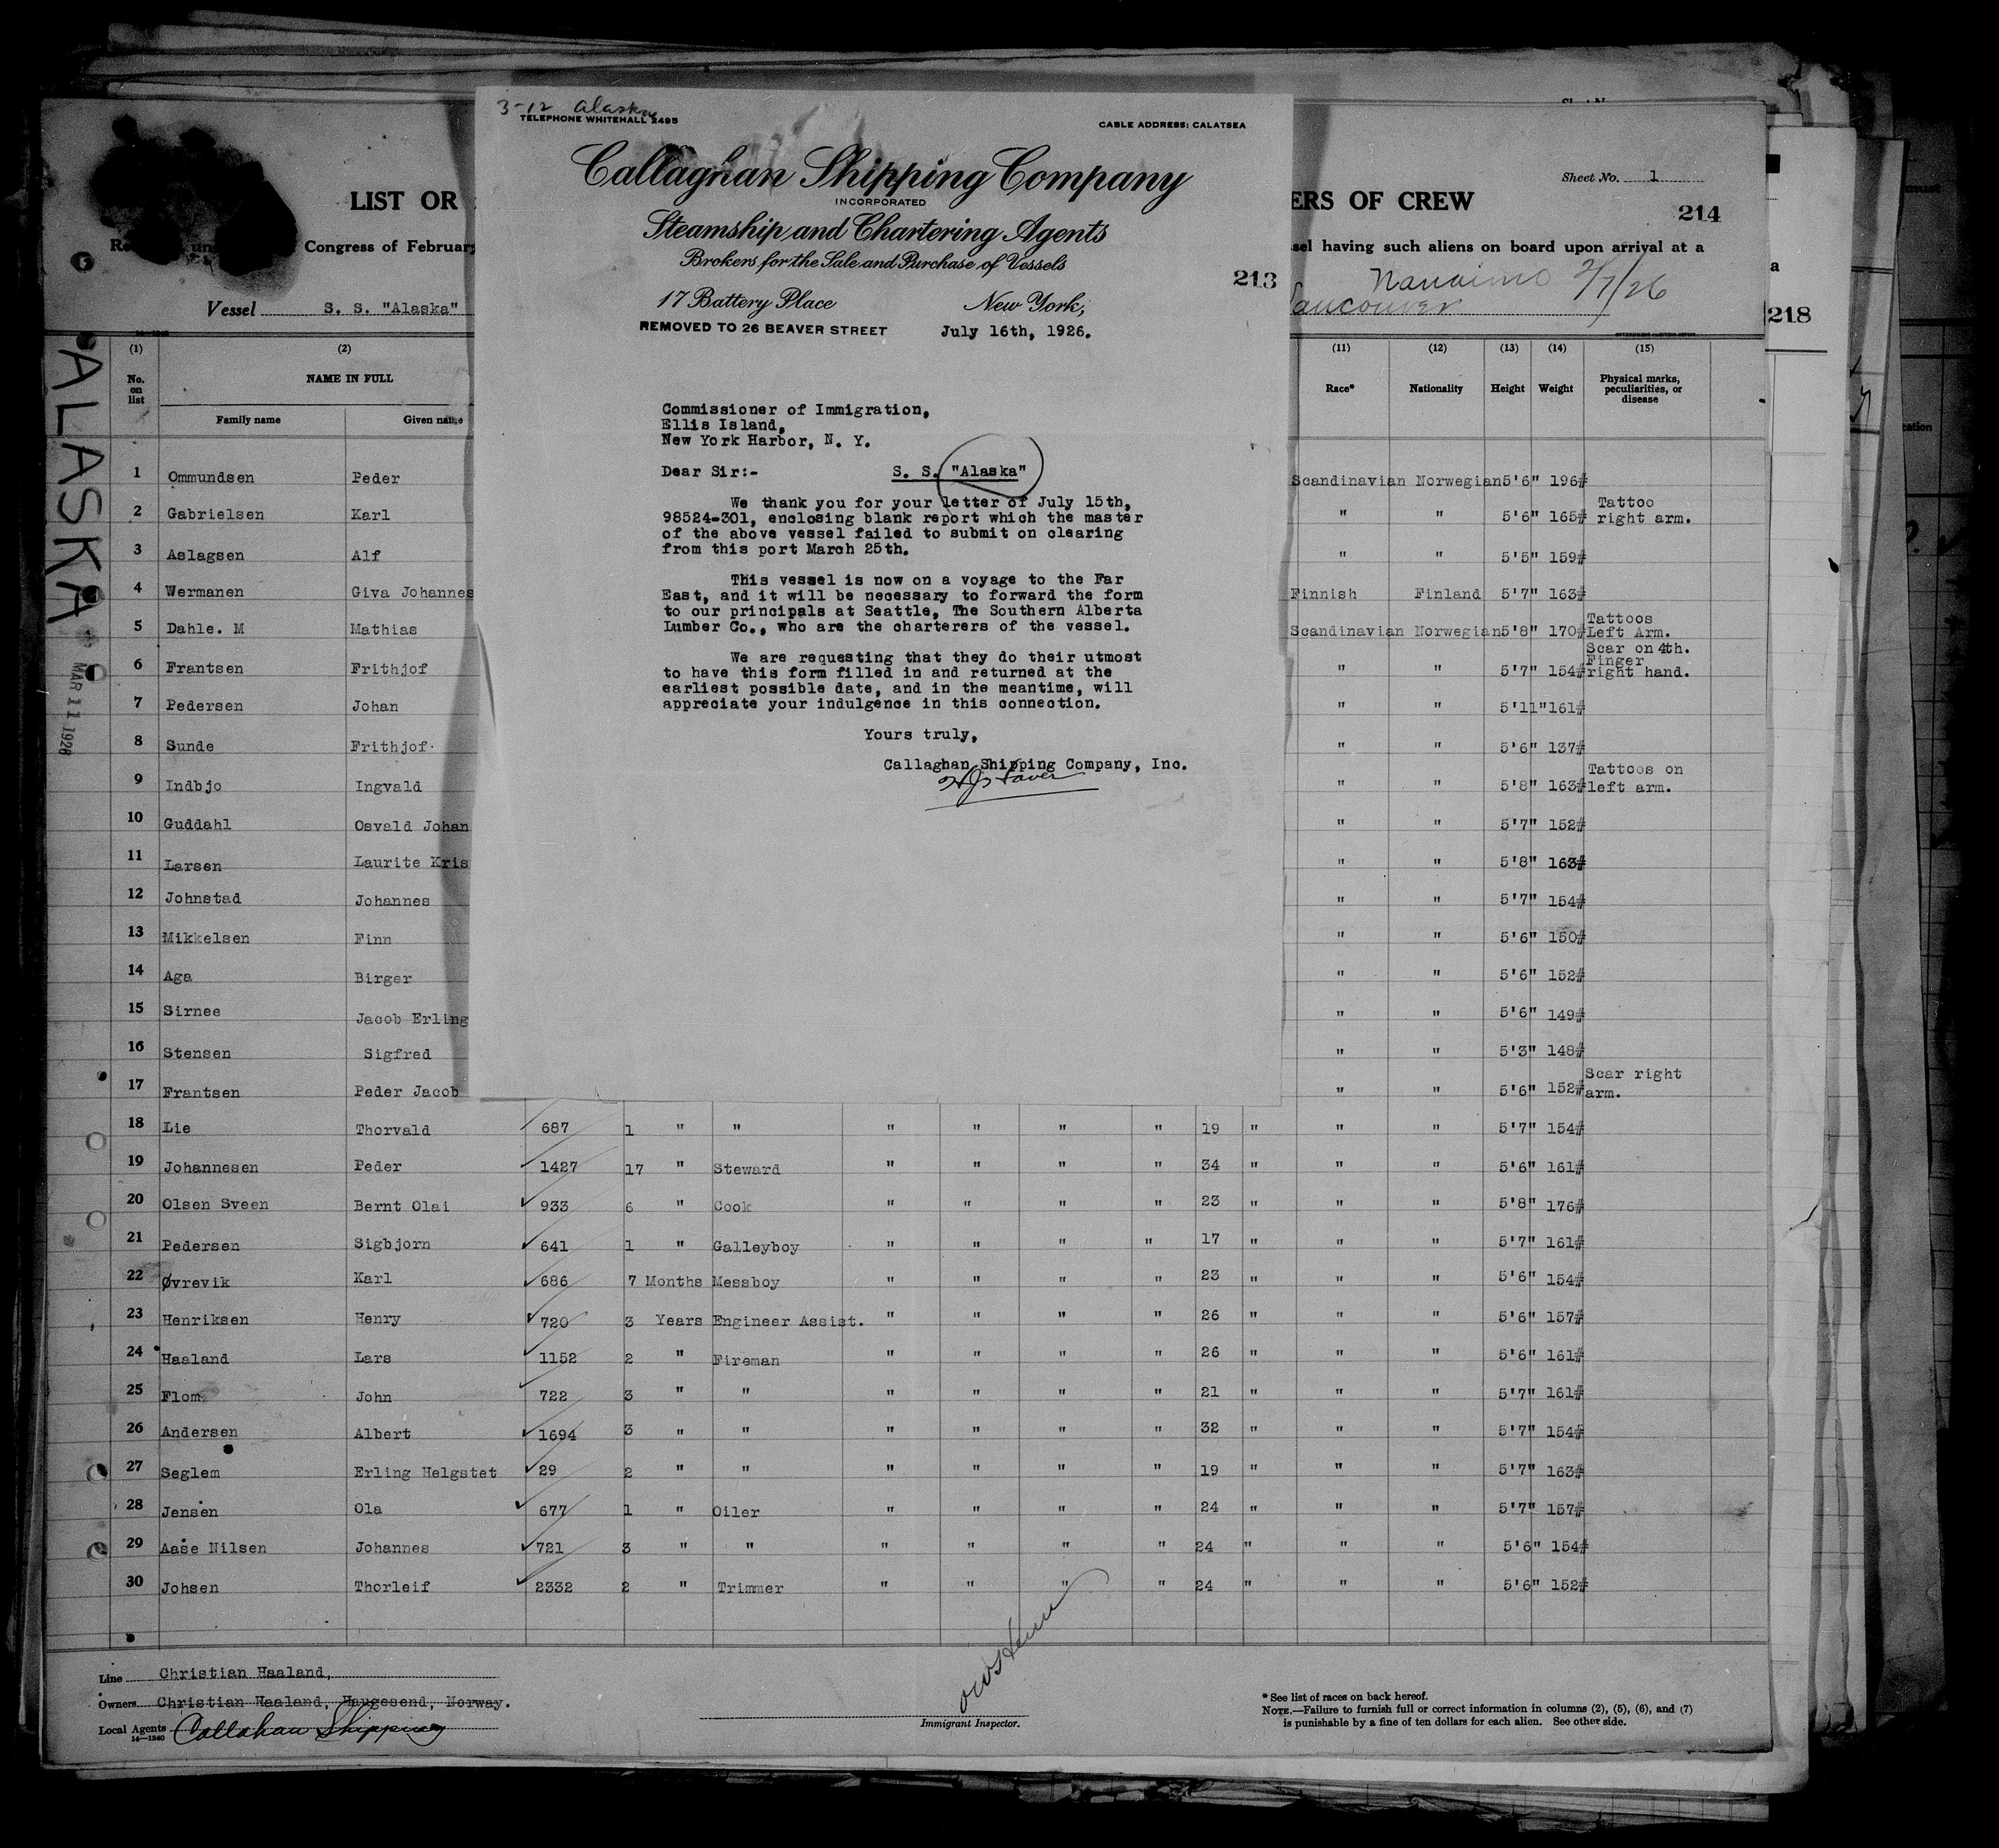 3-12 Alaska
TELEPHONE WHITEHALL 2495
CABLE ADDRESS: CALATSEA
Callaghan Shipping Company
INCORPORATED
Steamship and Chartering Agents
Brokers for the Sale and Purchase of Vessels
213
17 Battery Place New York,
REMOVED TO 26 BEAVER STREET July 16th, 1926.
Commissioner of Immigration,
Ellis Island,
New York Harbor, N. Y.
Dear Sir:- S. S. "Alaska"
We thank you for your letter of July 15th,
98524-301, enclosing blank report which the master
of the above vessel failed to submit on clearing
from this port March 25th.
This vessel is now on a voyage to the Far
East, and it will be necessary to forward the form
to our principals at Seattle, The Southern Alberta
Lumber Co., who are the charterers of the vessel.
We are requesting that they do their utmost
to have this form filled in and returned at the
earliest possible date, and in the meantime, will
appreciate your indulgence in this connection.
Yours truly,
Callaghan Shipping Company, Inc.
Sheet No. 1
LIST OR ERS OF CREW
214
Congress of February sel having such aliens on board upon arrival at a
Nanaimo 2/7/26
Vessel S. S. "Alaska" Vancouver
218
ALASKA
MAR 11 1926
(1) (2) (11) (12) (13) (14) (15)
No. on list NAME IN FULL Race* Nationality Height Weight Physical marks, peculiarities, or disease
Family name Given name
1 Ommundsen Peder Scandinavian Norwegian 5'6" 196#
2 Gabrielsen Karl " " 5'6" 165# Tattoo right arm.
3 Aslagsen Alf " " 5'5" 159#
4 Wermanen Giva Johannes Finnish Finland 5'7" 163#
5 Dahle. M Mathias Scandinavian Norwegian 5'8" 170# Tattoos Left Arm.
6 Frantsen Frithjof " " 5'7" 154# Scar on 4th. Finger right hand.
7 Pedersen Johan " " 5'11" 161#
8 Sunde Frithjof " " 5'6" 137#
9 Indbjo Ingvald " " 5'8" 163# Tattoos on left arm.
10 Guddahl Osvald Johan " " 5'7" 152#
11 Larsen Laurits Kris " " 5'8" 163#
12 Johnstad Johannes " " 5'7" 154#
13 Mikkelsen Finn " " 5'6" 150#
14 Aga Birger " " 5'6" 152#
15 Sirnee Jacob Erling " " 5'6" 149#
16 Stensen Sigfred " " 5'3" 148#
17 Frantsen Peder Jacob " " 5'6" 152# Scar right arm.
18 Lie Thorvald 687 1 " " " " " " 19 " " " 5'7" 154#
19 Johannesen Peder 1427 17 " Steward " " " " 34 " " " 5'6" 161#
20 Olsen Sveen Bernt Olai 933 6 " Cook " " " " 23 " " " 5'8" 176#
21 Pedersen Sigbjorn 641 1 " Galleyboy " " " " 17 " " " 5'7" 161#
22 Øvrevik Karl 686 7 Months Messboy " " " " 23 " " " 5'6" 154#
23 Henriksen Henry 720 3 Years Engineer Assist. " " " " 26 " " " 5'6" 157#
24 Haaland Lars 1152 2 " Fireman " " " " 26 " " " 5'6" 161#
25 Flom John 722 3 " " " " " " 21 " " " 5'7" 161#
26 Andersen Albert 1694 3 " " " " " " 32 " " " 5'7" 154#
27 Seglem Erling Helgstet 29 2 " " " " " " 19 " " " 5'7" 163#
28 Jensen Ola 677 1 " Oiler " " " " 24 " " " 5'7" 157#
29 Aase Nilsen Johannes 721 3 " " " " " " 24 " " " 5'6" 154#
30 Johsen Thorleif 2332 2 " Trimmer " " " " 24 " " " 5'6" 152#
Line Christian Haaland,
Owners Christian Haaland, Haugesend, Norway.
Local Agents Callahan Shipping
14—1240
Immigrant Inspector.
* See list of races on back hereof.
NOTE.—Failure to furnish full or correct information in columns (2), (5), (6), and (7)
is punishable by a fine of ten dollars for each alien. See other side.